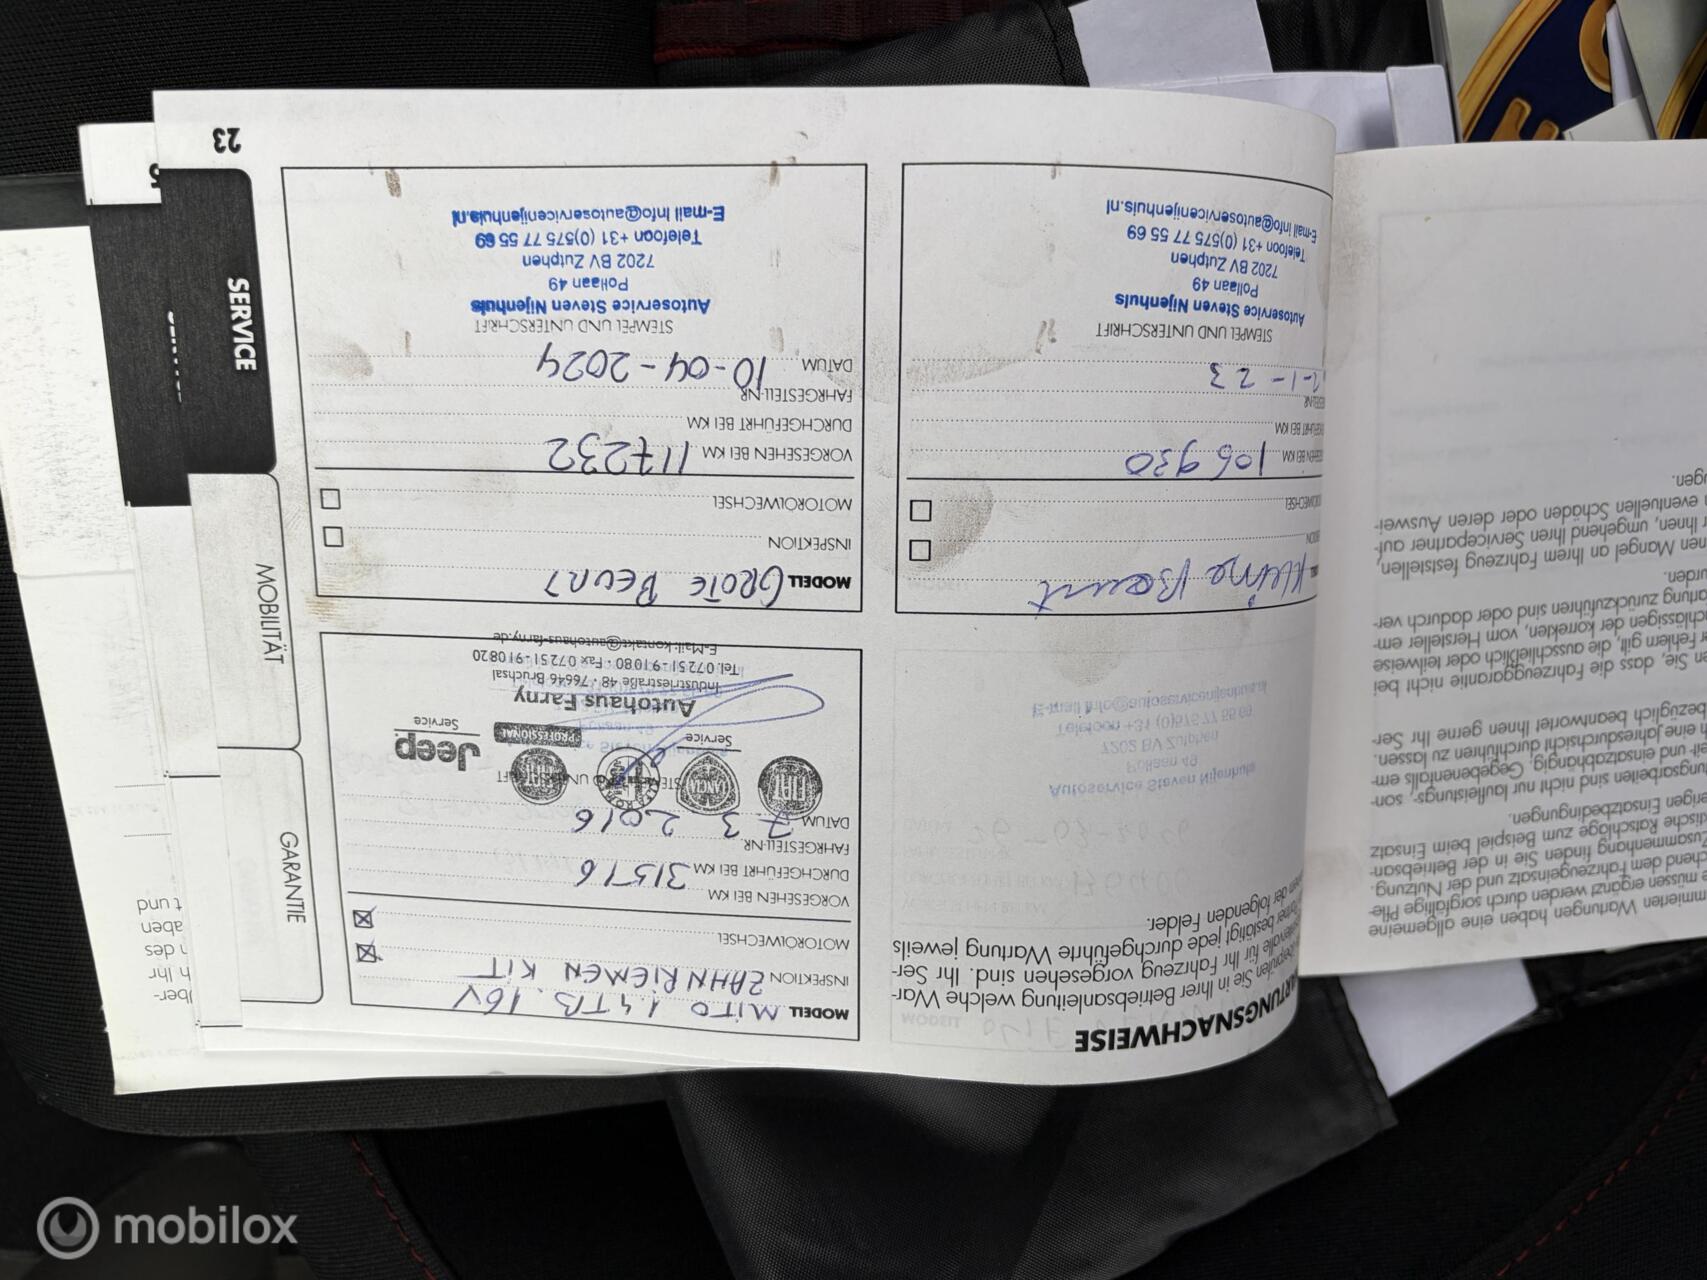 WARTUNGSNACHWEISE
Sie in Ihrer Betriebsanleitung welche War-
für Ihr Fahrzeug vorgesehen sind. Ihr Ser-
bestätigt jede durchgeführte Wartung jeweils
der folgenden Felder.
MODELL MITO 1.4 TB. 16V
INSPEKTION ZAHNRIEMEN KIT
MOTORÖLWECHSEL
VORGESEHEN BEI KM
DURCHGEFÜHRT BEI KM 31516
FAHRGESTELL-NR.
DATUM 7 3 2016
STEMPEL UND UNTERSCHRIFT
FIAT
LANCIA
Service
PROFESSIONAL
Jeep
Service
Autohaus Farny
Industriestraße 48 · 76646 Bruchsal
Tel. 0 72 51 - 9 10 80 · Fax 0 72 51 - 91 08 20
E-Mail: kontakt@autohaus-farny.de
Kleine Beurt
106930
2-1-23
STEMPEL UND UNTERSCHRIFT
Autoservice Steven Nijenhuis
Pollaan 49
7202 BV Zutphen
Telefoon +31 (0)575 77 55 69
E-mail info@autoservicenijenhuis.nl
MODELL GROTE BEURT
INSPEKTION
MOTORÖLWECHSEL
VORGESEHEN BEI KM 117232
DURCHGEFÜHRT BEI KM
FAHRGESTELL-NR.
DATUM 10-04-2024
STEMPEL UND UNTERSCHRIFT
Autoservice Steven Nijenhuis
Pollaan 49
7202 BV Zutphen
Telefoon +31 (0)575 77 55 69
E-mail info@autoservicenijenhuis.nl
23
SERVICE
MOBILITÄT
GARANTIE
Wartungen haben eine allgemeine
müssen ergänzt werden durch sorgfältige Pfle-
chend dem Fahrzeugeinsatz und der Nutzung.
Zusammenhang finden Sie in der Betriebsan-
Ratschläge zum Beispiel beim Einsatz
Einsatzbedingungen.
tungsarbeiten sind nicht nur laufleistungs-, son-
und einsatzabhängig. Gegebenenfalls em-
eine Jahresdurchsicht durchführen zu lassen.
bezüglich beantwortet Ihnen gerne Ihr Ser-
Sie, dass die Fahrzeuggarantie nicht bei
Fehlern gilt, die ausschließlich oder teilweise
korrekten, vom Hersteller em-
Wartung zurückzuführen sind oder dadurch ver-
wurden.
Mangel an Ihrem Fahrzeug feststellen,
Ihnen, umgehend Ihren Servicepartner auf-
eventuellen Schäden oder deren Auswei-
mobilox